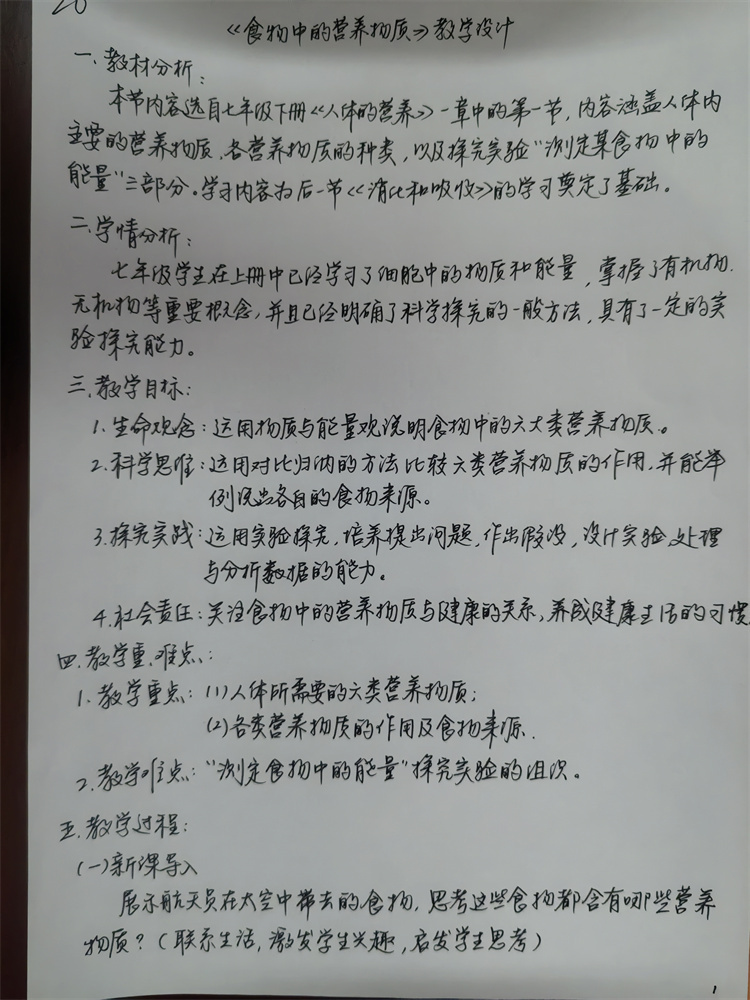 20
《食物中的营养物质》教学设计
一、教材分析：
本节内容选自七年级下册《人体的营养》一章中的第一节，内容涵盖人体内
主要的营养物质，各营养物质的种类，以及探究实验“测定某食物中的
能量”三部分。学习内容为后一节《消化和吸收》的学习奠定了基础。
二、学情分析：
七年级学生在上册中已经学习了细胞中的物质和能量，掌握了有机物、
无机物等重要概念，并且已经明确了科学探究的一般方法，具有了一定的实
验探究能力。
三、教学目标：
1.生命观念：运用物质与能量观说明食物中的六大类营养物质。
2.科学思维：运用对比归纳的方法比较六类营养物质的作用，并能举
例说出各自的食物来源。
3.探究实践：运用实验探究，培养提出问题，作出假设，设计实验，处理
与分析数据的能力。
4.社会责任：关注食物中的营养物质与健康的关系，养成健康生活的习惯。
四、教学重、难点：
1.教学重点：(1)人体所需要的六类营养物质；
(2)各类营养物质的作用及食物来源.
2.教学难点：“测定食物中的能量”探究实验的组织。
五、教学过程：
(一)新课导入
展示航天员在太空中带去的食物，思考这些食物都含有哪些营养
物质？（联系生活，激发学生兴趣，启发学生思考）
1